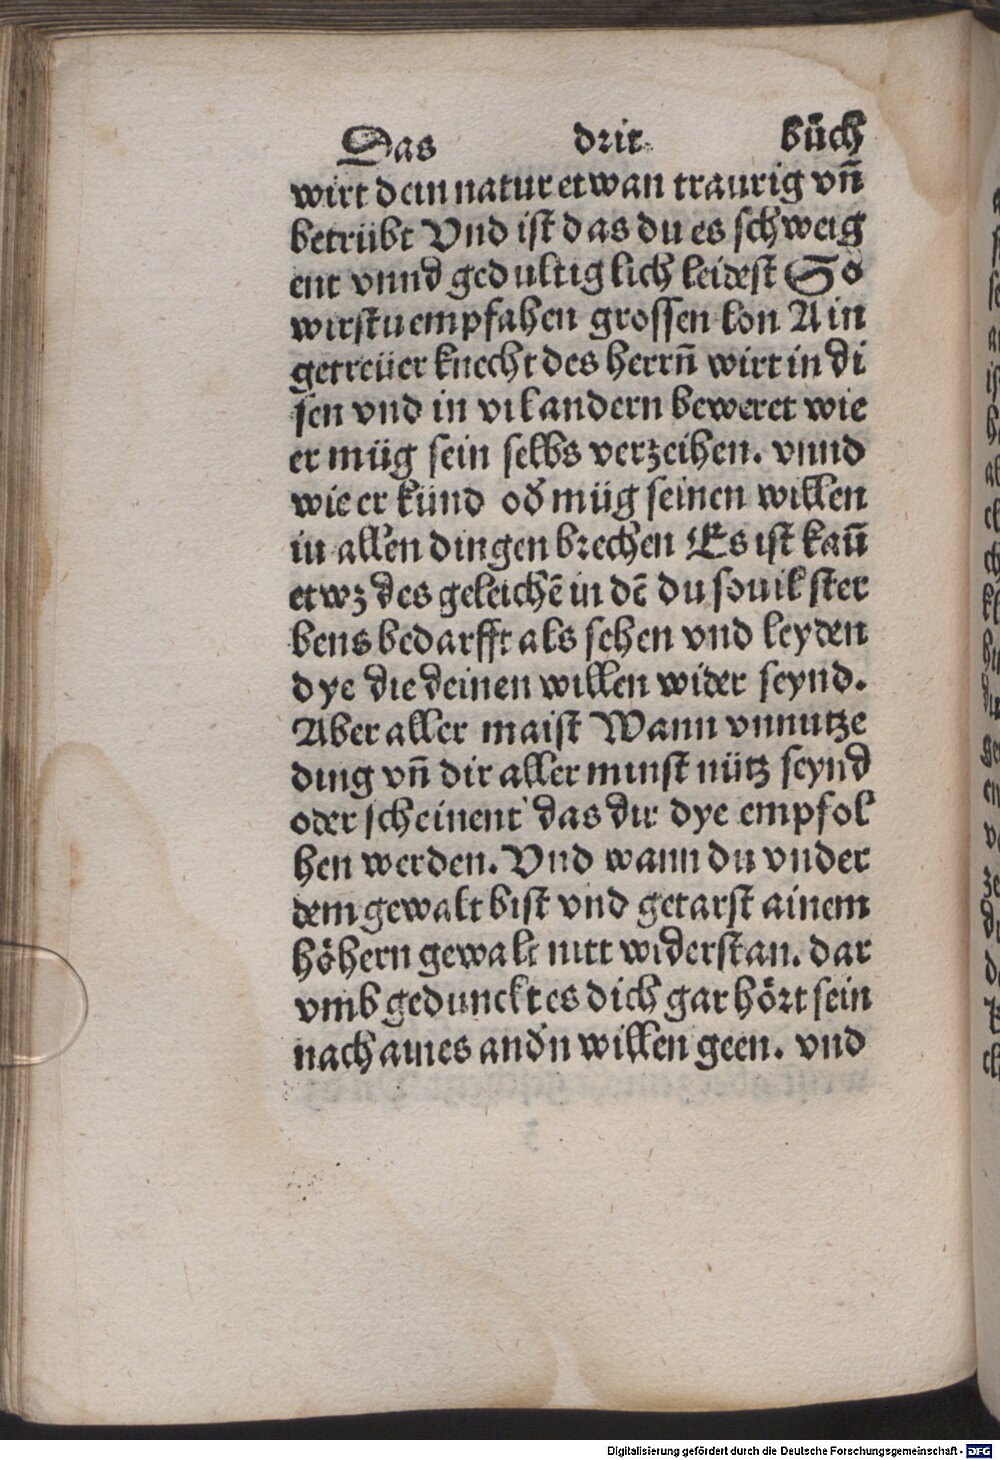 Das drit bůch
wirt dein natur etwan traurig vnñ
betrübt Vnd ist das du es schweig
ent vnnd gedultiglich leidest So
wirstu empfahen grossen lon Ain
getreüer knecht des herrñ wirt in di
sen vnd in vil andern beweret wie
er müg sein selbs verzeihen. vnnd
wie er künd oď müg seinen willen
in allen dingen brechen Es ist kaū
etwz des geleichē in dē du souil ster
bens bedarfft als sehen vnd leyden
dye die deinen willen wider seynd.
Aber aller maist Wann vnnutze
ding vñ dir aller minst nütz seynd
oder scheinent das dir dye empfol
hen werden. Vnd wann du vnder
dem gewalt bist vnd getarst ainem
höhern gewalt nitt widerstan. dar
vmb gedunckt es dich gar hört sein
nach aines anďn willen geen. vnd
Digitalisierung gefördert durch die Deutsche Forschungsgemeinschaft - DFG